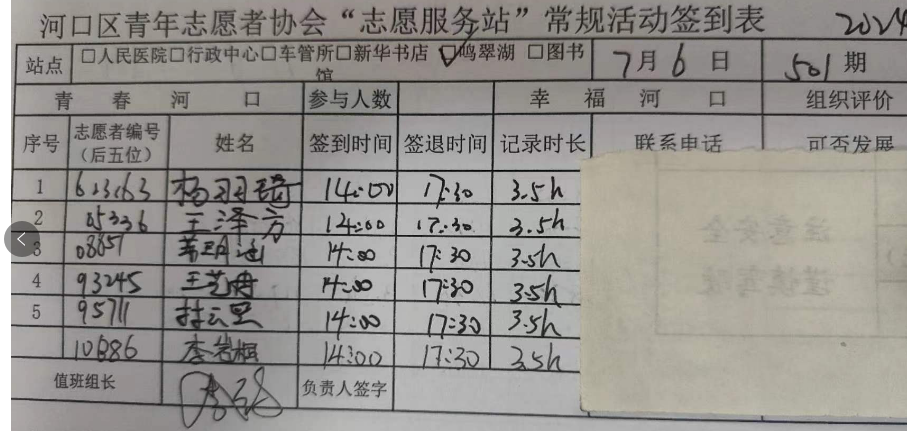 河口区青年志愿者协会“志愿服务站”常规活动签到表 2024
站点 □人民医院□行政中心□车管所□新华书店 ☑鸣翠湖 □图书馆 7月6日 501期
青春河口 参与人数 幸福河口 组织评价
序号 志愿者编号（后五位） 姓名 签到时间 签退时间 记录时长 联系电话 可否发展
1 杨羽琦 14:00 17:30 3.5h
2 05336 王泽方 14:00 17:30 3.5h
3 14:00 17:30 3.5h
4 93245 王艺冉 14:00 17:30 3.5h
5 95711 14:00 17:30 3.5h
李岩枫 14:00 17:30 3.5h
值班组长 负责人签字
注意安全
谨慎驾驶